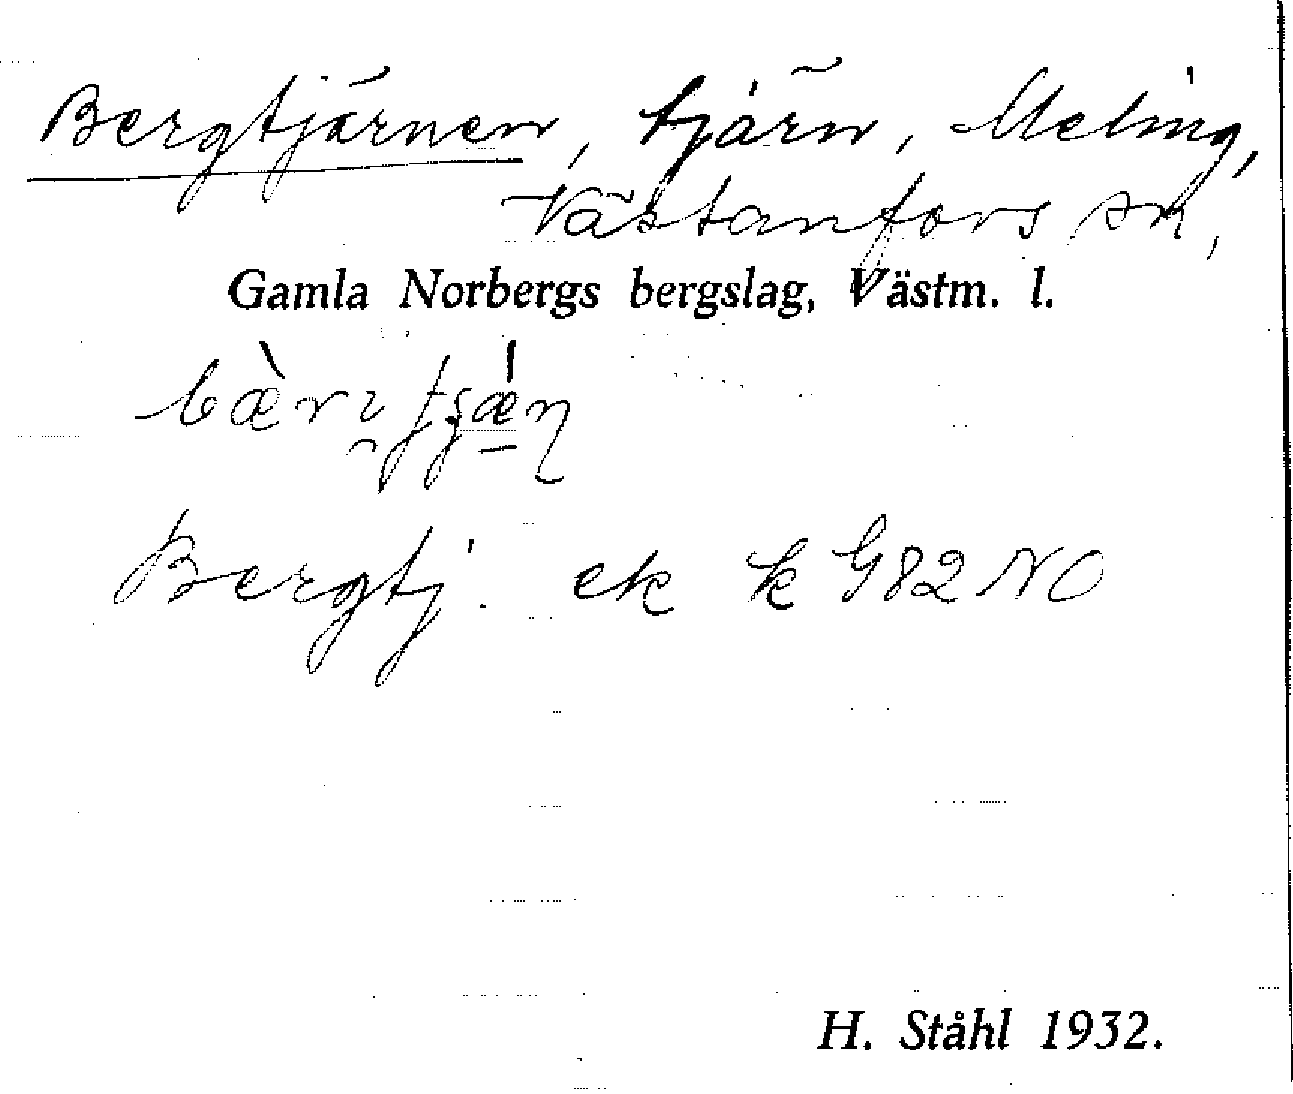 Bergtjärnen, tjärn, Meling,
Västanfors sn,
Gamla Norbergs bergslag, Västm. l.
Bergtj. ek k G82 NO
H. Ståhl 1932.